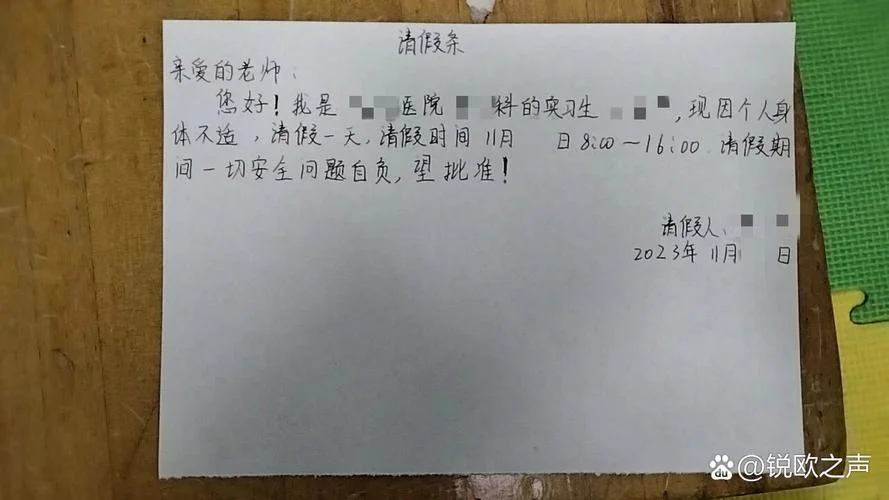 请假条
亲爱的老师：
您好！我是 医院 科的实习生 ，现因个人身
体不适，请假一天，请假时间 11月 日8:00～16:00 请假期
间一切安全问题自负，望批准！
请假人：
2023年 11月 日
du @锐欧之声